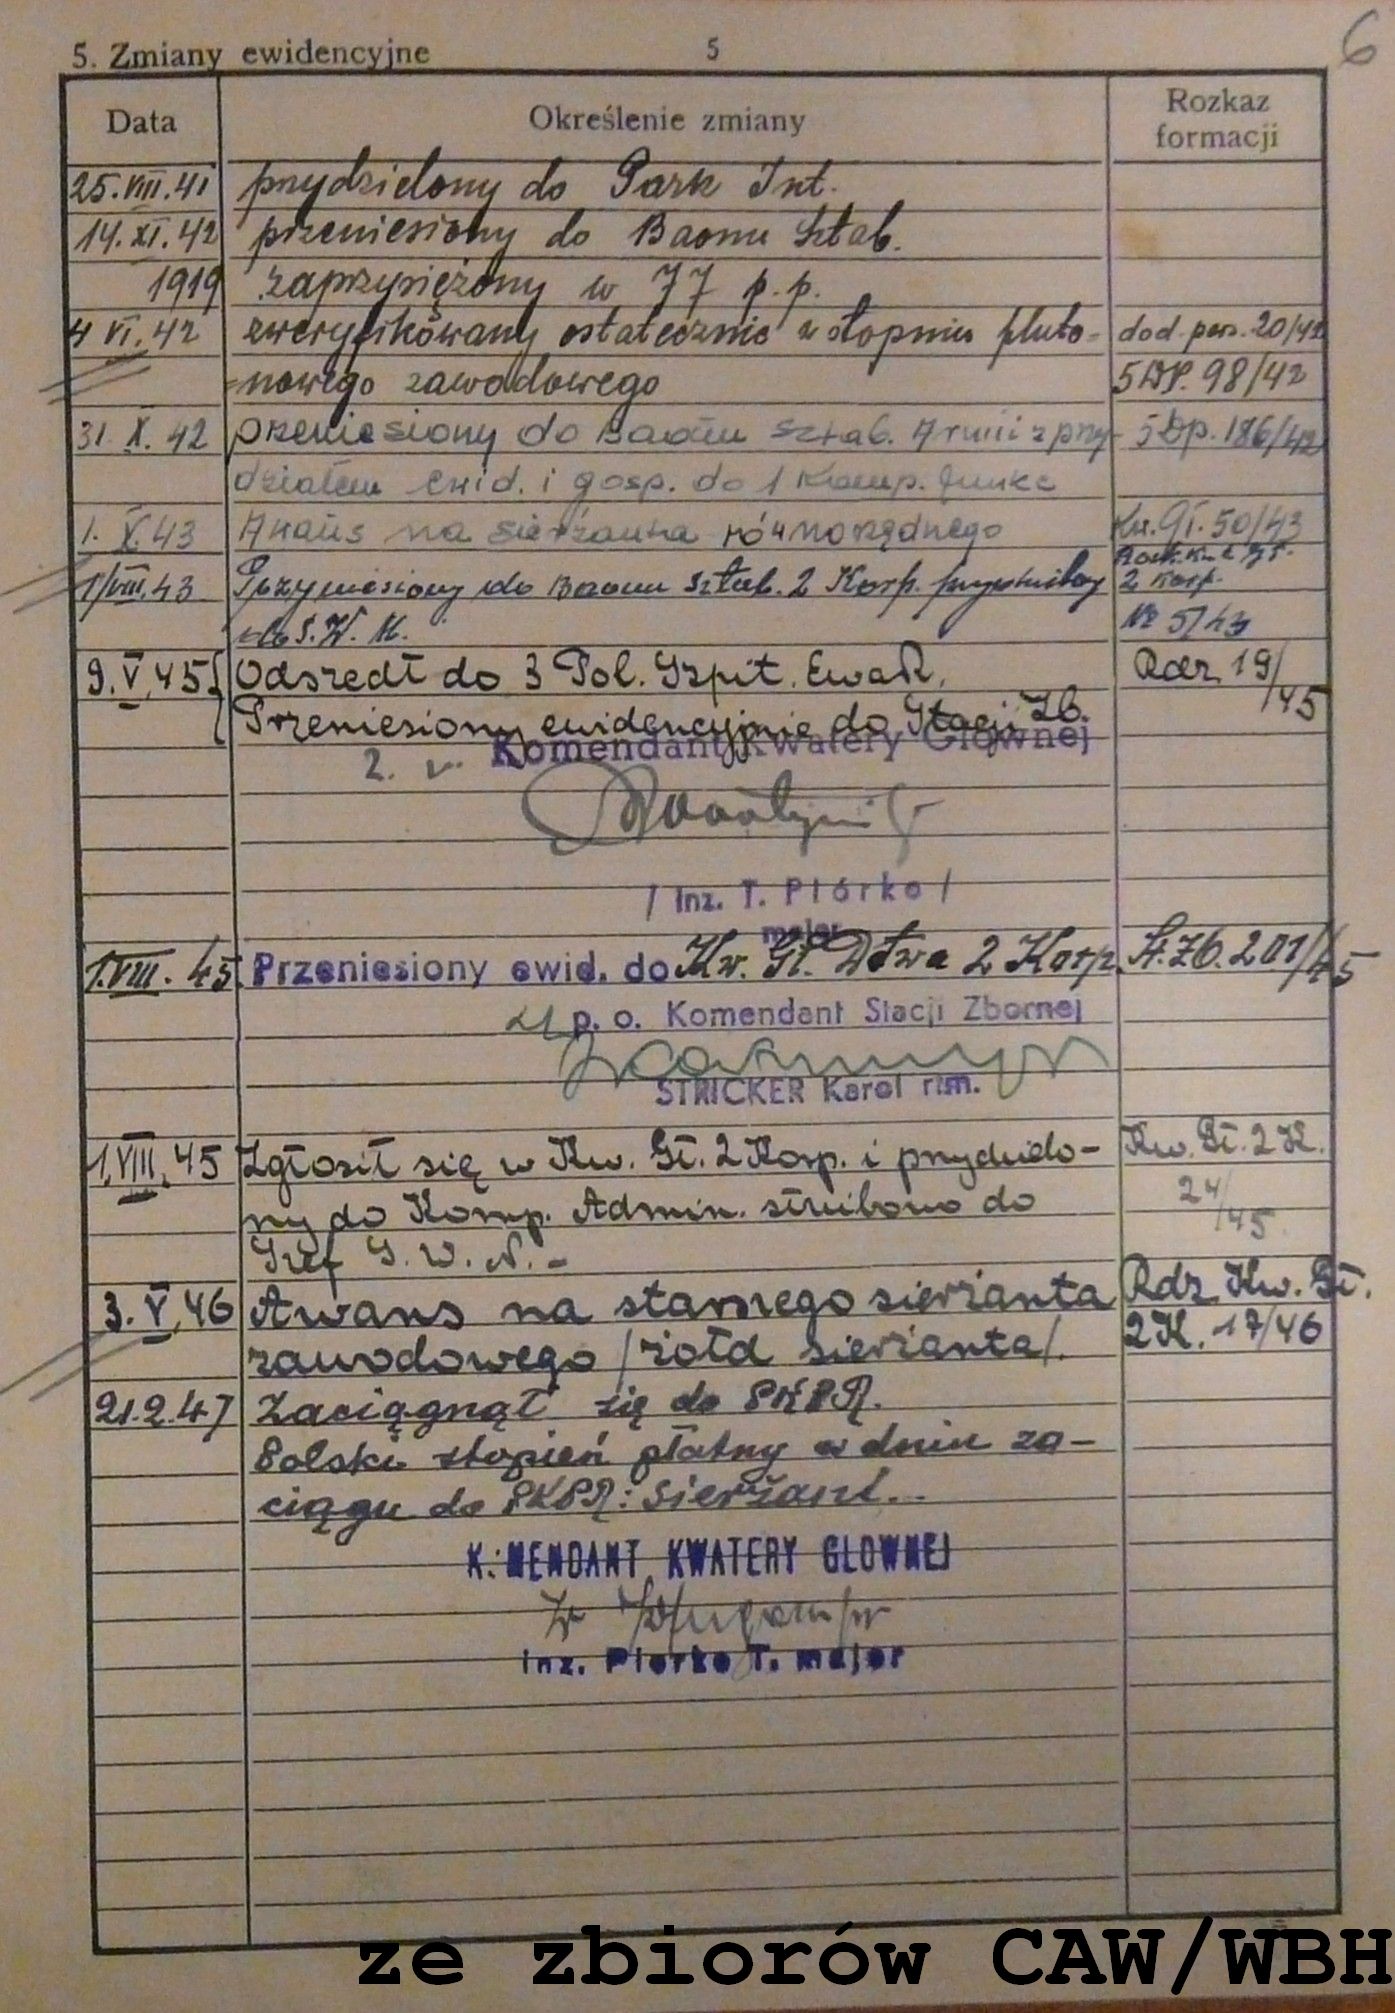 6
5. Zmiany ewidencyjne 5
Data Określenie zmiany Rozkaz formacji
25.VIII.41 przydzielony do Park Int.
14.XI.42 przeniesiony do Baonu Sztab.
1919 zaprzysiężony w 77 p.p.
4 VI.42 zweryfikowany ostatecznie w stopniu pluto- dod. pers. 20/42
nowego zawodowego 5 DP. 98/42
31. X. 42 przeniesiony do Baonu Sztab. Armii z przy- 5 Dp. 186/42
działem ewid. i gosp. do 1 Komp.
1. X.43 Awans na sierżanta równorzędnego Kw. Gł. 50/43
1/VIII.43 Przyniesiony do Baonu Sztab. 2 Korp. 2 Korp.
Nr 5/43
9.V.45 Odszedł do 3 Pol. Szpit. Ewak. Rdz 19/45
Przeniesiony ewidencyjnie do Stacji Zb.
Komendant Kwatery Głównej
/ Inż. T. Piórko /
major
1.VIII.45 Przeniesiony ewid. do Kw. Gł. Dtwa 2 Korp. St. Zb. 201/45
p. o. Komendant Stacji Zbornej
STRICKER Karol rtm.
1.VIII.45 Zgłosił się w Kw. Gł. 2 Korp. i przydzielo- Kw. Gł. 2 K.
ny do Komp. Admin. służbowo do 24/45
Szef S. W. N. -
3.V.46 Awans na starszego sierżanta Rdz. Kw. Gł.
zawodowego /żołd sierżanta/. 2 K. 17/46
21.2.47 Zaciągnął się do PKPR.
Polski stopień płatny w dniu za-
ciągu do PKPR: Sierżant..
K:MENDANT KWATERY GLOWNEJ
inz. Piorko T. major
ze zbiorów CAW/WBH